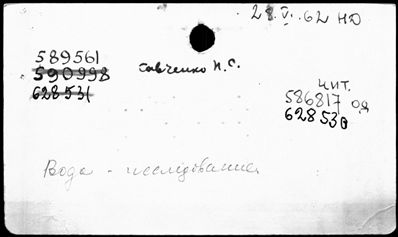 28.V.62 НД
589561
590998
628531
Савченко Н.С.
чит.
586817 од
628530
Вода - исследование